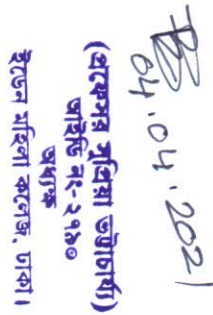 04.04.2021
(প্রফেসর সুপ্রিয়া ভট্টাচার্য্য)
আইডি নং-২৭৯০
অধ্যক্ষ
ইডেন মহিলা কলেজ, ঢাকা।